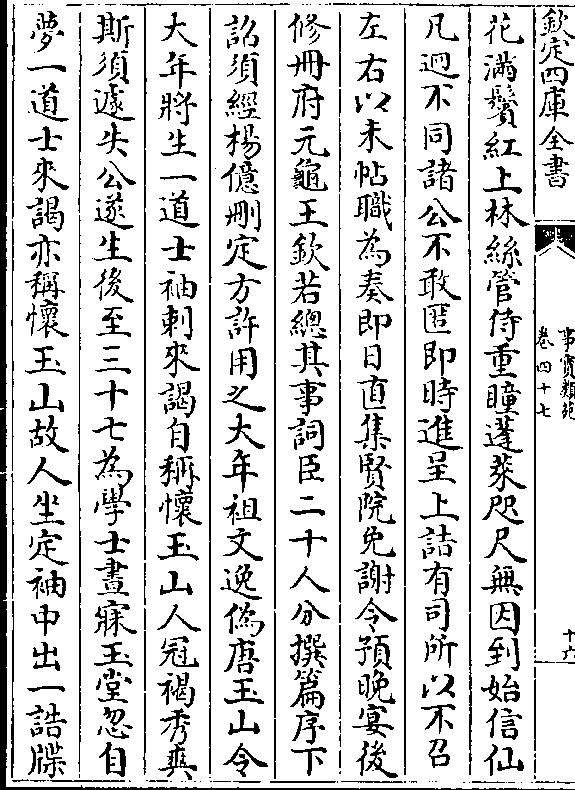 欽定四庫全書
事實類苑
卷四十七
十六
花滿鬢紅上林絲管侍重瞳蓬萊咫尺無因到始信仙
凡迥不同諸公不敢匿即時進呈上詰有司所以不召
左右以未帖職為奏即日直集賢院免謝令預晚宴後
修冊府元龜王欽若總其事詞臣二十人分撰篇序下
詔須經楊億刪定方許用之大年祖文逸偽唐玉山令
大年將生一道士袖刺來謁自稱懷玉山人冠褐秀爽
斯須遽失公遂生後至三十七為學士晝寐玉堂忽自
夢一道士來謁亦稱懷玉山故人坐定袖中出一誥牒